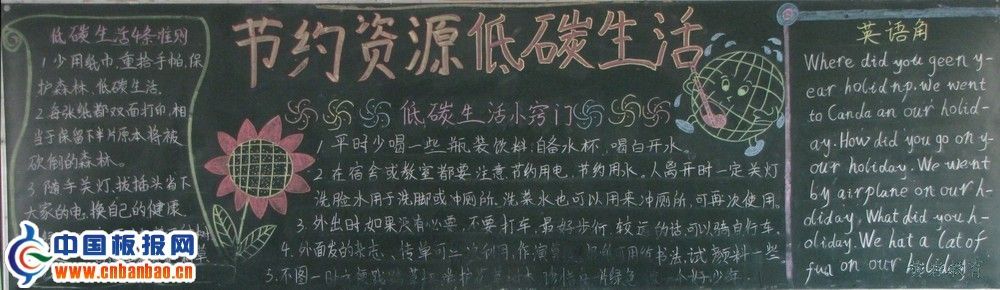 节约资源低碳生活
低碳生活4条准则
1 少用纸巾,重拾手帕,保
护森林,低碳生活。
2 每张纸都双面打印,相
当于保留下半片原本将被
砍倒的森林。
3 随手关灯,拔插头省下
大家的电,换自己的健康
中国板报网
www.cnbanbao.cn
低碳生活小窍门
1 平时少喝一些瓶装饮料,自备水杯,喝白开水。
2 在宿舍或教室都要注意节约用电,节约用水。人离开时一定关灯
洗脸水用于洗脚或冲厕所,洗菜水也可以用来冲厕所,可再次使用。
3、外出时如果没有必要,不要打车,最好步行,较远的话可以骑自行车。
4. 外面发的杂志、传单可 利用,作演草 书法,试颜料一些。
5.不图一时
英语角
Where did you geen y-
ear holidnp. We went
to Canda an our holid-
ay. How did you go on y-
our holiday. We went
by airplane on our h-
oliday. What did you h-
oliday. We hat a lat of
fud on our holiday